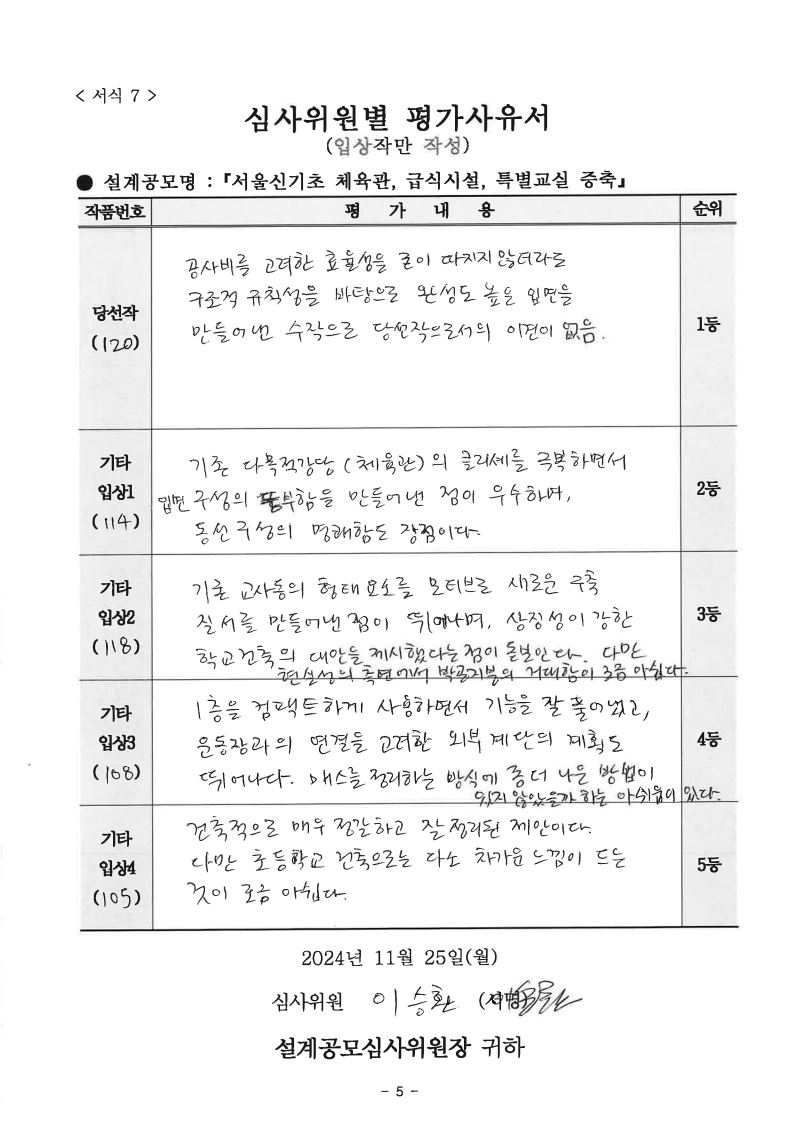 < 서식 7 >
심사위원별 평가사유서
(입상작만 작성)
● 설계공모명 : 『서울신기초 체육관, 급식시설, 특별교실 증축』
작품번호 평 가 내 용 순위
당선작
(120)
공사비를 고려한 효율성을 굳이 따지지 않더라도
구조적 규칙성을 바탕으로 완성도 높은 입면을
만들어낸 수작으로 당선작으로서의 이견이 없음.
1등
기타
입상1
(114)
기존 다목적강당 (체육관)의 클리셰를 극복하면서
입면 구성의 풍부함을 만들어낸 점이 우수하며,
동선구성의 명쾌함도 장점이다.
2등
기타
입상2
(118)
기존 교사동의 형태요소를 모티브로 새로운 구축
질서를 만들어낸 점이 뛰어나며, 상징성이 강한
학교건축의 대안을 제시했다는 점이 돋보인다. 다만
현실성의 측면에서 박공지붕의 거대함이 조금 아쉽다.
3등
기타
입상3
(108)
1층을 컴팩트하게 사용하면서 기능을 잘 풀어냈고,
운동장과의 연결을 고려한 외부계단의 계획도
뛰어나다. 매스를 정리하는 방식에 좀 더 나은 방법이
있지 않았을까 하는 아쉬움이 있다.
4등
기타
입상4
(105)
건축적으로 매우 정갈하고 잘 정리된 제안이다.
다만 초등학교 건축으로는 다소 차가운 느낌이 드는
것이 조금 아쉽다.
5등
2024년 11월 25일(월)
심사위원 이승환 (서명)
설계공모심사위원장 귀하
- 5 -